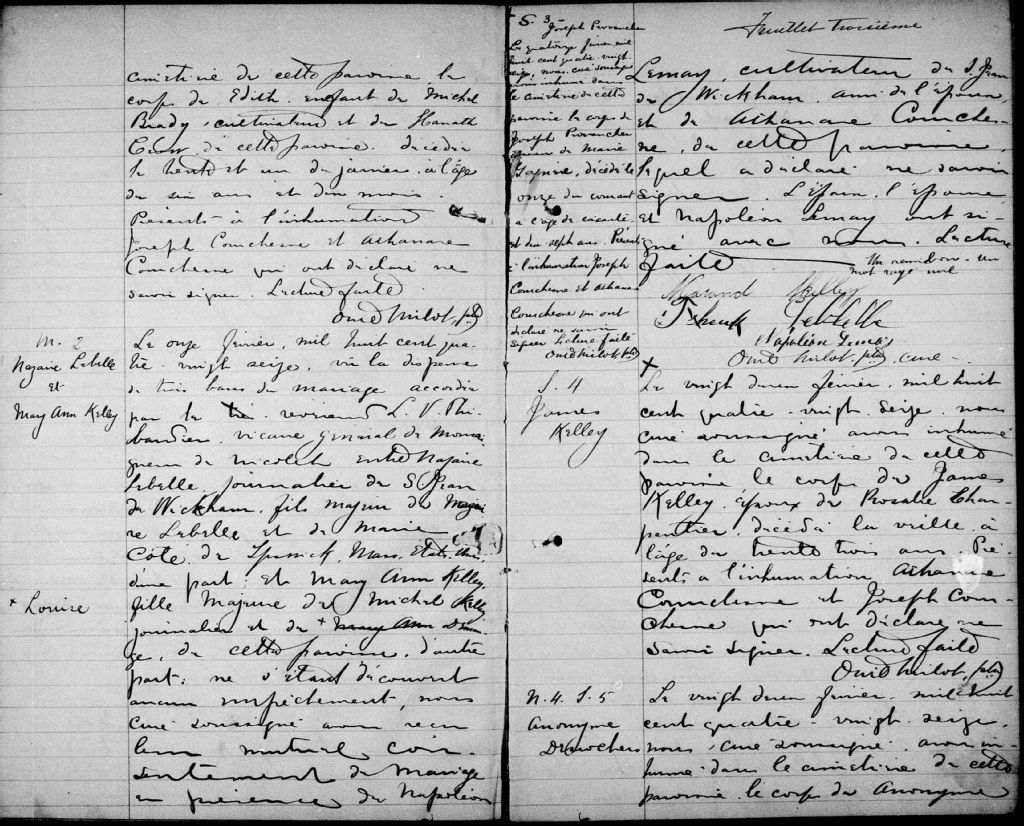 cimetière de cette paroisse le
corps de Edith enfant de Michel
Brady, cultivateur et de Hanah
de cette paroisse décédée
le trente et un de janvier à l'âge
de six ans et demi mois.
Présents à l'inhumation
Joseph Courchesne et Athanase
Courchesne qui ont déclaré ne
savoir signer. Lecture faite
Ovid Milot, ptre
M. 2
Nazaire Lebelle
et
Mary Ann Kelley
Le onze février, mil huit cent qua-
tre-vingt seize, vu la dispense
de trois bans de mariage accordée
par le très reverend L. V. Thi-
baudier, vicaire général de Monsei-
gneur de Nicolet entre Nazaire
Lebelle, journalier de St Jean
de Wickham, fils majeur de Nazai-
re Lebelle et de Marie
Côté de Ipswick, Mass. Etats-Unis
d'une part; et Mary Ann Kelley,
fille majeure de Michel Kelly
× Louise
journalier et de + Mary Ann
de cette paroisse, d'autre
part; ne s'étant découvert
aucun empêchement, nous
Curé soussigné avons reçu
leur mutuel con-
sentement de mariage
en présence de Napoléon
Feuillet troisième
S. 3
Joseph Provancher
Le quatorze février mil
huit cent quatre vingt
seize, nous curé soussigné
avons inhumé dans
le cimetière de cette
paroisse le corps de
Joseph Provancher
époux de Marie
décédé le
onze du courant
à l'âge de
et dix sept ans. Présents
à l'inhumation Joseph
Courchesne et Athanase
Courchesne qui ont
déclaré ne savoir
signer Lecture faite
Ovid Milot ptre
Lemay, cultivateur de St Jean
de Wickham, ami de l'époux,
et de Athanase Courches-
ne, de cette paroisse,
lequel a déclaré ne savoir
signer. L'époux, l'épouse
et Napoléon Lemay ont si-
gné avec nous. Lecture
faite
Un renvoi bon - Un
mot rayé nul
Kelley
Lebelle
Napoléon Lemay
Ovid Milot, ptre, curé
S. 4
James
Kelley
Le vingt deux février, mil huit
cent quatre-vingt seize, nous
curé soussigné avons inhumé
dans le cimetière de cette
paroisse le corps de James
Kelley, époux de Rosalie Char-
pentier, décédé la veille, à
l'âge de trente trois ans. Pré-
sents à l'inhumation, Athanase
Courchesne et Joseph Cour-
chesne qui ont déclaré ne
savoir signer. Lecture faite
Ovid Milot, ptre
N. 4. S. 5
Anonyme
Desrochers
Le vingt deux février, mil huit
cent quatre-vingt seize,
nous, curé soussigné, avons in-
humé dans le cimetière de cette
paroisse le corps de Anonyme